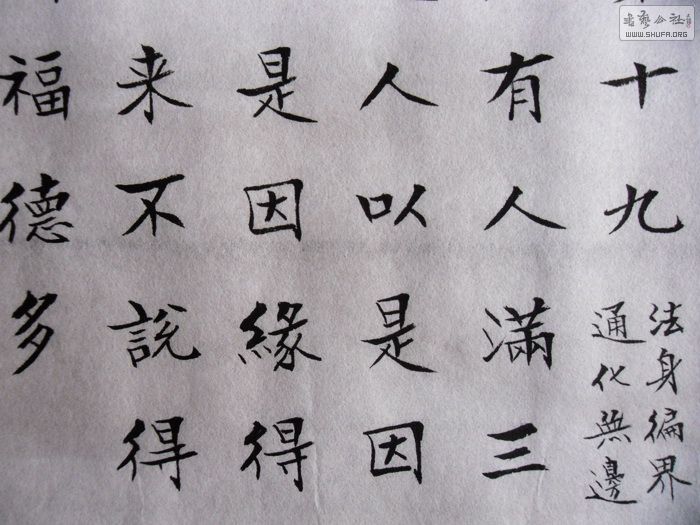 十九
法身徧界
通化無邊
有人滿三
人以是因
是因緣得
来不說得
福德多
書藝公社
WWW.SHUFA.ORG